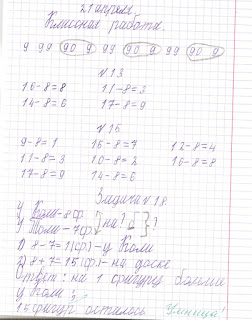 21 апреля.
Классная работа.
9 99 90 9 99 90 9 99 90 9
№13
16-8=8 11-8=3
14-8=6 17-8=9
№16
9-8=1 16-8=7 12-8=4
11-8=3 10-8=2 16-8=8
17-8=9 14-8=6
Задача №18.
У Коли-8ф. на?
У Толи-7ф. ?
1) 8-7=1(ф)-у Коли
2) 8+7=15(ф)-на доске
Ответ: на 1 фигуру больше
у Коли
15 фигур осталось Умница!